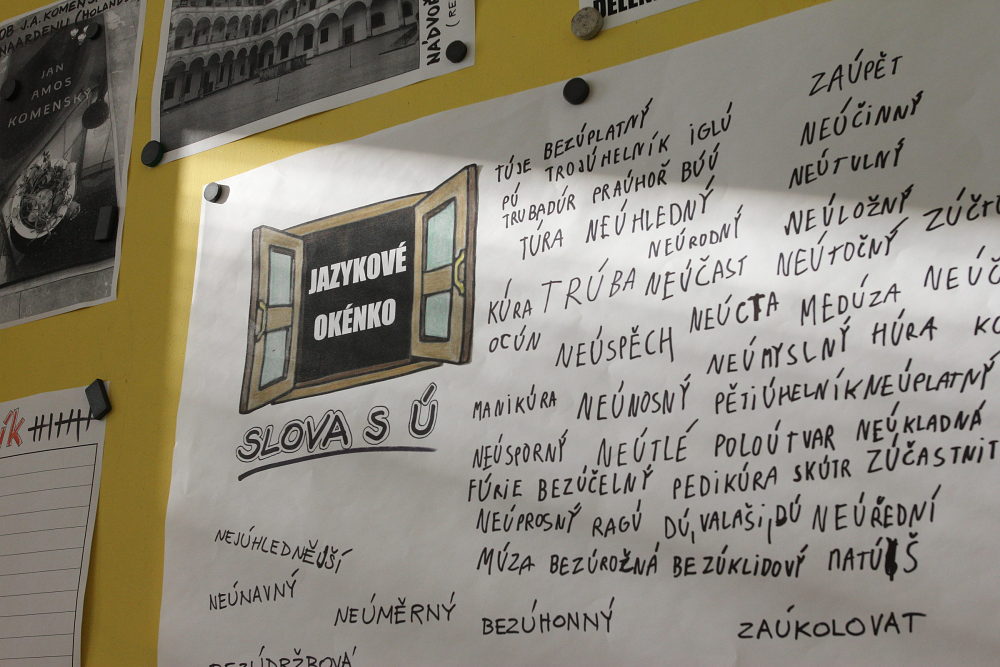 OB J.A. KOMENS
NAARDENU (HOLAND
JAN
AMOS
KOMENSKÝ
NÁDVOŘ
(RE
JAZYKOVÉ
OKÉNKO
SLOVA S Ú
ZAÚPĚT
TÚJE BEZÚPLATNÝ
NEÚČINNÝ
PÚ TROJÚHELNÍK IGLÚ
TRUBADÚR PRAÚHOŘ BÚÚ
NEÚTULNÝ
TÚRA NEÚHLEDNÝ
NEÚRODNÝ
NEÚLOŽNÝ
ZÚČTO
KÚRA TRÚBA NEÚČAST NEÚTOČNÝ
OCÚN NEÚSPĚCH NEÚCTA MEDÚZA NEÚČ
NEÚMYSLNÝ HÚRA KO
MANIKÚRA NEÚNOSNÝ PĚTIÚHELNÍK NEÚPLATNÝ
NEÚSPORNÝ NEÚTLÉ POLOÚTVAR NEÚKLADNÁ
FÚRIE BEZÚČELNÝ PEDIKÚRA SKÚTR ZÚČASTNIT
NEÚPROSNÝ RAGÚ DÚ,VALAŠI,DÚ NEÚŘEDNÍ
MÚZA BEZÚROŽNÁ BEZÚKLIDOVÝ MATÚŠ
NEJÚHLEDNĚJŠÍ
NEÚNAVNÝ
NEÚMĚRNÝ BEZÚHONNÝ ZAÚKOLOVAT
BEZÚDRŽBOVÁ